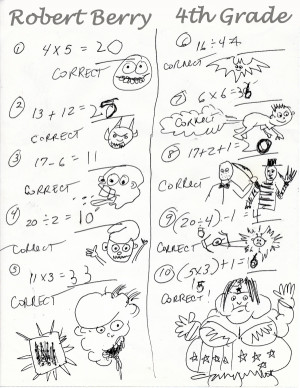 Robert Berry 4th Grade
① 4 x 5 = 20
CORRECT
② 13 + 12 = 25
CORRECT
③ 17 - 6 = 11
CORRECT
④ 20 ÷ 2 = 10
CORRECT
⑤ 11 x 3 = 33
CORRECT
⑥ 16 ÷ 4 = 4
CORRECT
⑦ 6 x 6 = 36
CORRECT
⑧ 17 + 2 + 1 = 20
CORRECT
⑨ (20 ÷ 4) - 1 = 4
CORRECT
⑩ (5 x 3) + 1 = 16
15
CORRECT!